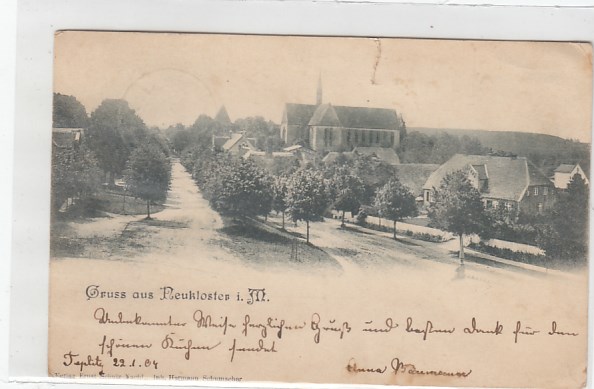 Gruss aus Neukloster i. M.
Unbekannter Weise herzlichen Gruß und besten Dank für den
schönen Kuchen sendet
Teplitz 22.1.04 Anna
Verlag Ernst Nachf., Inh. Hermann Schumacher